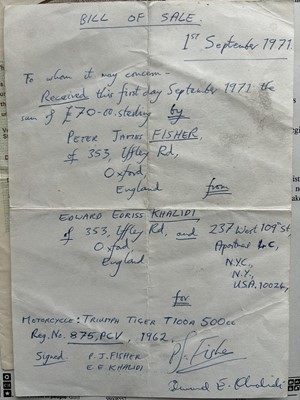 BILL OF SALE.
1ST September 1971.
To whom it may concern
Received this first day September 1971 the
sum of £70-00. sterling by
PETER JAMES FISHER.
of 353, Iffley Rd,
Oxford,
England
from
EDWARD EDRISS KHALIDI
of 353, Iffley Rd. and 237 West 109th St,
Oxford, Apartment
England N.Y.C.,
N.Y.,
USA. 10026,
for
MOTORCYCLE: TRIUMPH TIGER T100A 500cc
Reg. No. 875, PCV, 1962.
Signed P.J. FISHER
E.E. KHALIDI